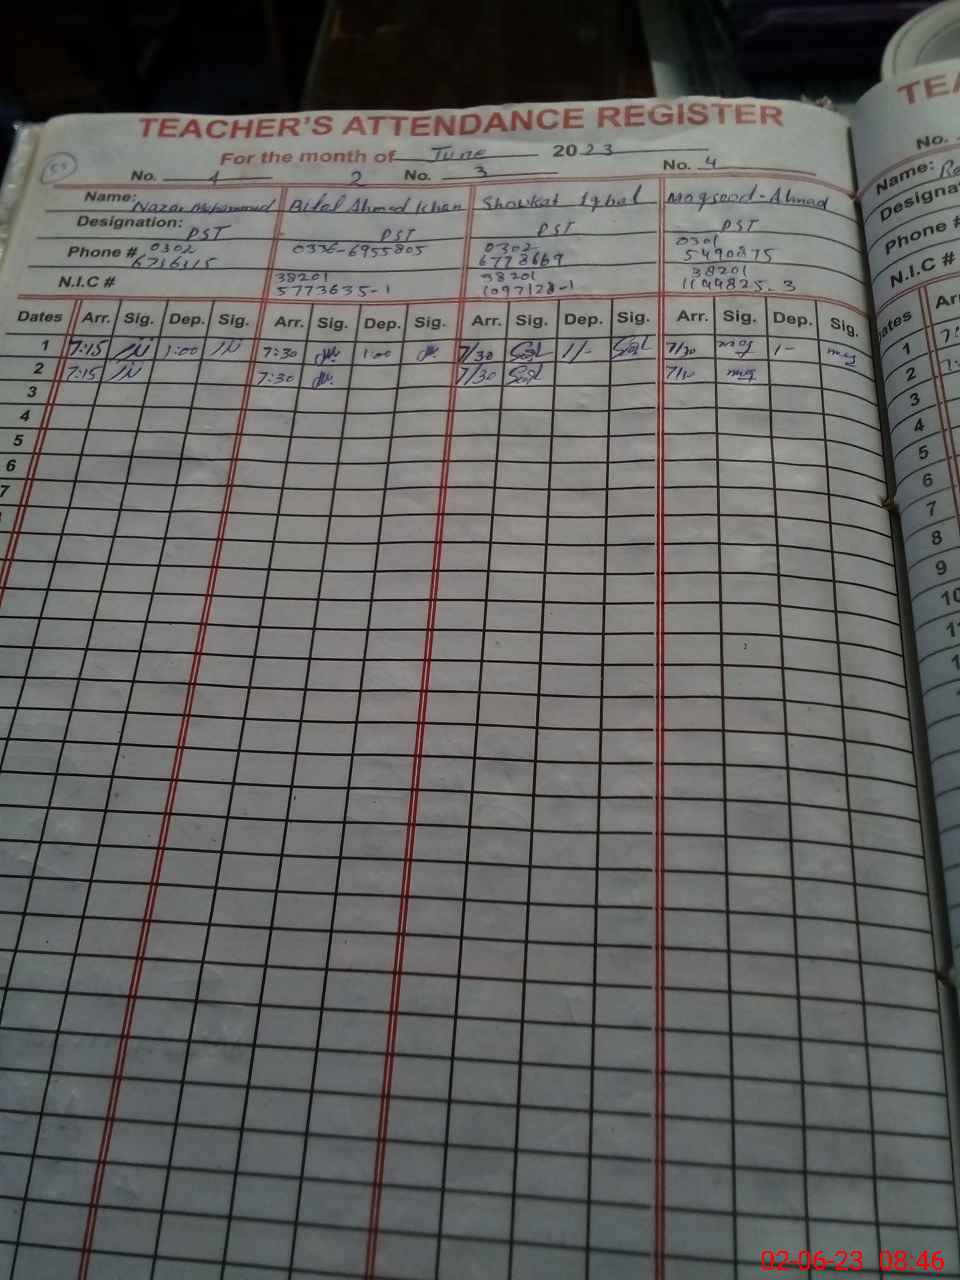 TEACHER'S ATTENDANCE REGISTER
For the month of June 2023
No. 1 2 No. 3 No. 4
Name: Nazar Muhammad Bilal Ahmad Khan Showkat Iqbal Maqsood-Ahmad
Designation: PST PST PST PST
Phone # 0302 0336-6955805 0302 0301
6716315 6778669 5490875
N.I.C # 38201 38201 38201
5773635-1 1097128-1 1144825-3
Dates Arr. Sig. Dep. Sig. Arr. Sig. Dep. Sig. Arr. Sig. Dep. Sig. Arr. Sig. Dep. Sig.
1 7:15 1:00 7:30 1:00 7/30 1/- 7/30 maq 1- maq
2 7:15 7:30 7/30 7/30 maq
3
4
5
6
7
TEA
No.
Name:
Designa
Phone #
N.I.C #
ates Arr
1
2
3
4
5
6
7
8
9
10
02-06-23 08:46